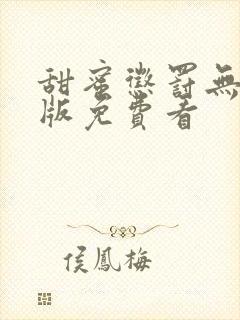 甜蜜懲罰無
版免費看
侯鳳梅